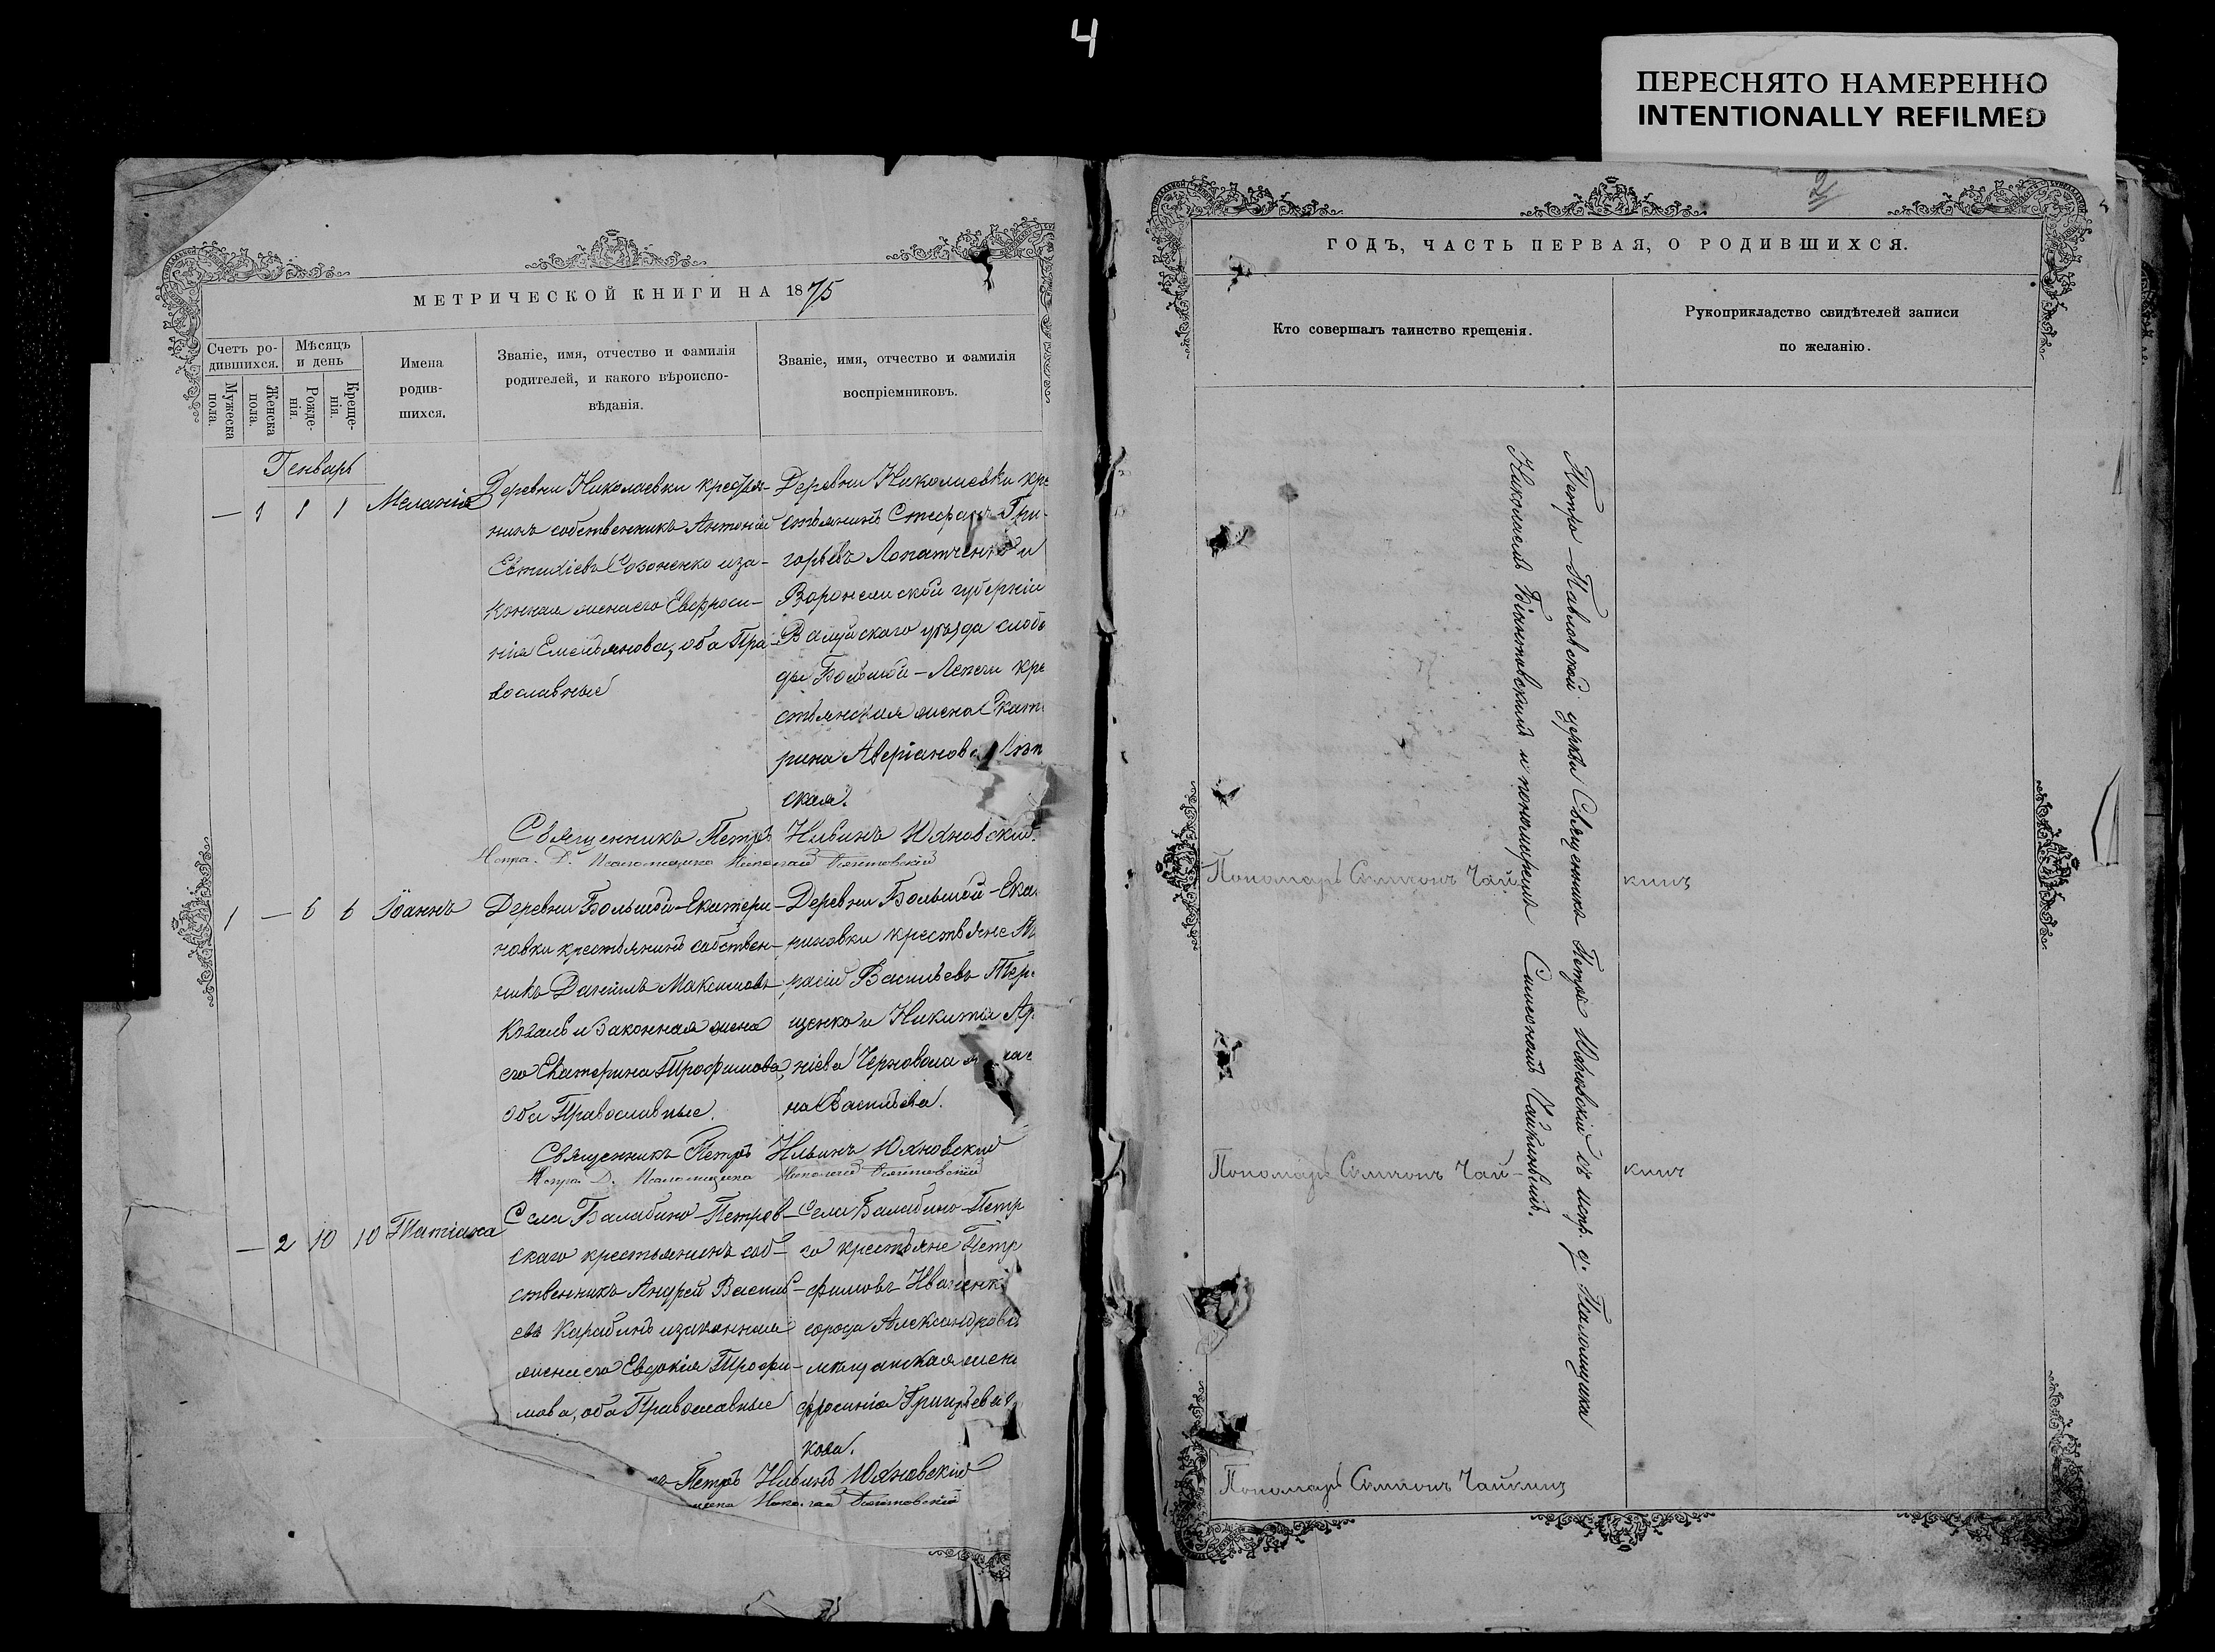 4
ПЕРЕСНЯТО НАМЕРЕННО
INTENTIONALLY REFILMED
МЕТРИЧЕСКОЙ КНИГИ НА 1875
Счетъ ро-
дившихся.
Мужеска
пола.
Женска
пола.
Мѣсяцъ
и день
Рожде-
нія.
Креще-
нія.
Имена
родив-
шихся.
Званіе, имя, отчество и фамилія
родителей, и какого вѣроиспо-
вѣданія.
Званіе, имя, отчество и фамилія
воспріемниковъ.
Генварь
— 1 1 1 Меланія
Деревни Николаевки крестья-
нинъ собственникъ Антоній
Евтихіевъ Созоненко и за-
конная жена его Евфроси-
нія Емельянова, оба Пра-
вославные
Деревни Николаевки кре
стьянинъ Стефанъ Гри-
горьевъ Лопатченко и
Воронежской губерніи
Валуйскаго уѣзда слобо
ды Большой-Липки кре
стьянская жена Екате
рина Аверіанова
ская.
Священникъ Петръ Ильинъ Юхновскій.
Испра. Д. Псаломщика Николай Біянтовскій
1 — 6 6 Іоаннъ
Деревни Большой-Екатери-
новки крестьянинъ собствен-
никъ Даніилъ Максимовъ
Коваль и законная жена
его Екатерина Трофимова,
оба Православные.
Деревни Большой-Ека
риновки крестьяне
расій Васильевъ Тер
щенко и Никита
ніева Черновола
на Васильева.
Священникъ Петръ Ильинъ Юхновскій
Испра. Д. Псаломщика Николай Біянтовскій
— 2 10 10 Татіана
Села Балабино-Петров-
скаго крестьянинъ соб-
ственникъ Андрей Василь-
евъ Карабинъ и законная
жена его Евдокія Трофи-
мова, оба Православные
Села Балабино-Петр
го крестьяне Петр
фимовъ Иваненк
города Александровс
мѣщанская жена
фросинія Григорьева
кова.
Петръ Ильинъ Юхновскій
Николай Біянтовскій
2
ГОДЪ, ЧАСТЬ ПЕРВАЯ, О РОДИВШИХСЯ.
Кто совершалъ таинство крещенія.
Рукоприкладство свидѣтелей записи
по желанію.
Петро-Павловской церкви Священникъ Петръ Юхновскій съ испр. д. Псаломщика
Николаемъ Біянтовскимъ и пономаремъ Симеономъ Чайкинымъ.
Пономарь Симеонъ Чайкинъ
Пономарь Симеонъ Чай-кинъ
Пономарь Симеонъ Чайкинъ